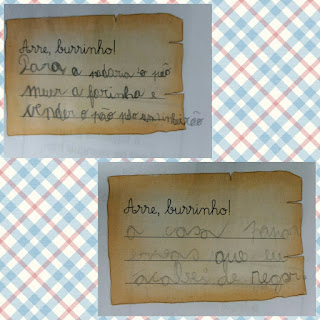 Arre, burrinho!
Para a padaria o pão
meer a farinha e
vender o pão
Arre, burrinho!
a casa
que eu
acabei de